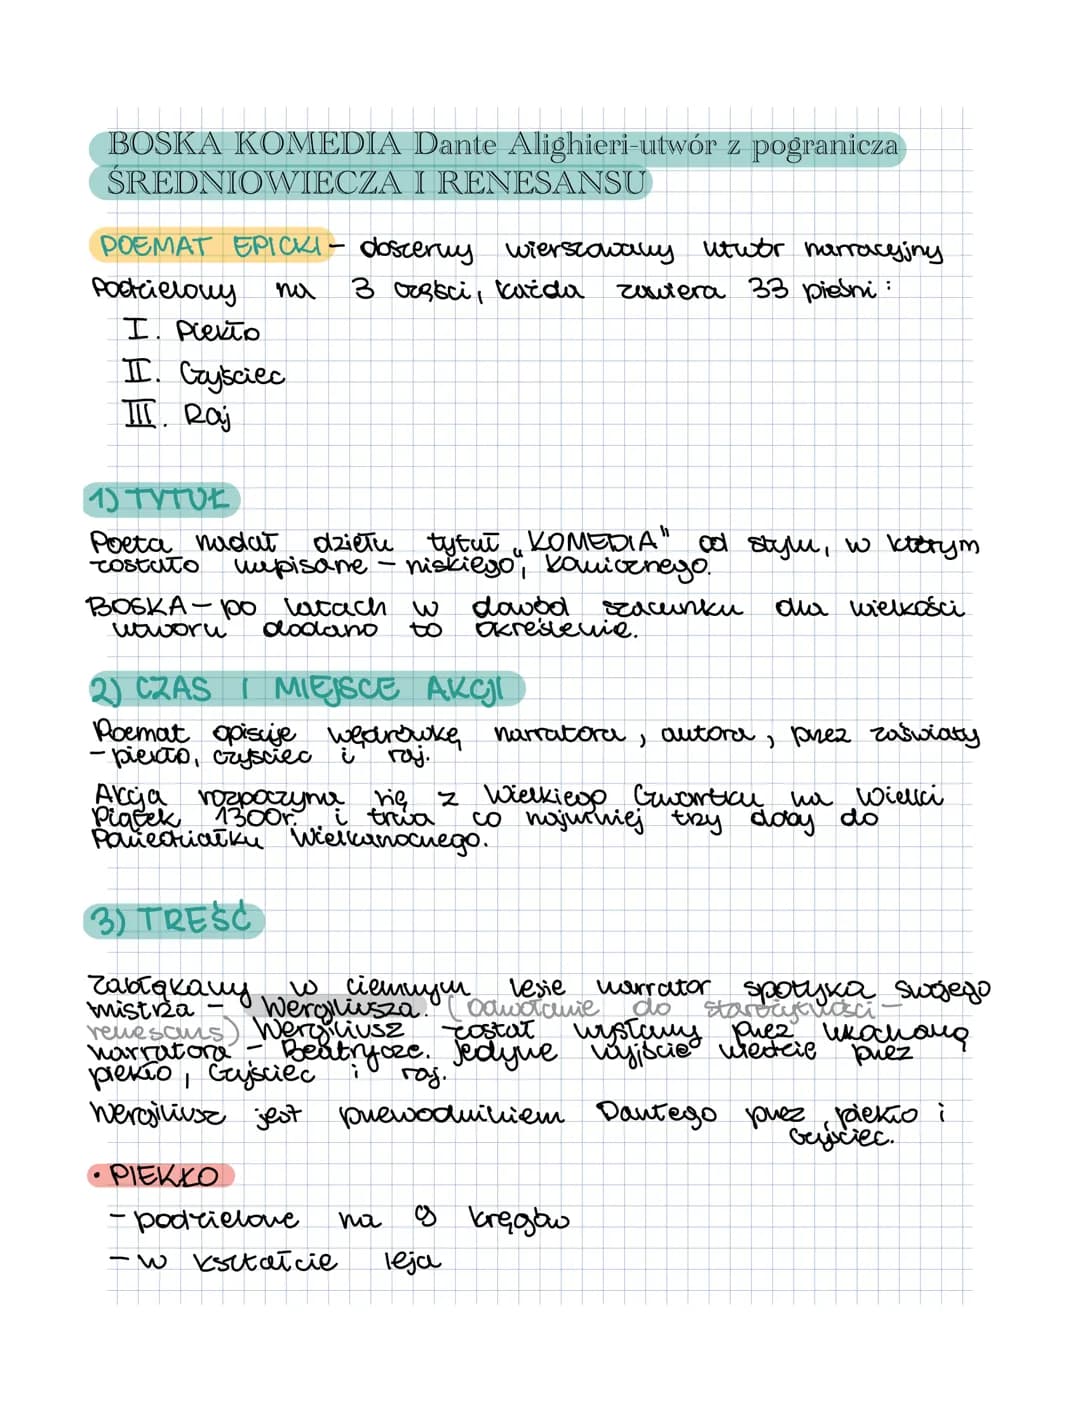 BOSKA KOMEDIA Dante Alighieri-utwór z pogranicza
ŚREDNIOWIECZA I RENESANSU
POEMAT EPICKI - obszerny wierszowany utwór narracyjny
Podzielony na 3 części, każda zawiera 33 pieśni :
I. Piekło
II. Czyściec
III. Raj
1) TYTUŁ
Poeta nadał dziełu tytuł „KOMEDIA" od stylu, w którym
zostało napisane - niskiego, komicznego.
BOSKA - po latach w dowód szacunku dla wielkości
utworu dodano to określenie.
2) CZAS I MIEJSCE AKCJI
Poemat opisuje wędrówkę narratora, autora, przez zaświaty
- piekło, czyściec i raj.
Akcja rozpoczyna się z Wielkiego Czwartku na Wielki
Piątek 1300r. i trwa co najmniej trzy doby do
Poniedziałku Wielkanocnego.
3) TREŚĆ
Zabłąkany w ciemnym lesie narrator spotyka swojego
mistrza - Wergiliusza. (odwołanie do starożytności -
renesans) Wergiliusz został wysłany przez ukochaną
narratora - Beatrycze. Jedyne wyjście wiedzie przez
piekło, Czyściec i raj.
Wergiliusz jest przewodnikiem Dantego przez piekło i
Czyściec.
• PIEKŁO
- podzielone na 9 kręgów
- w kształcie leja